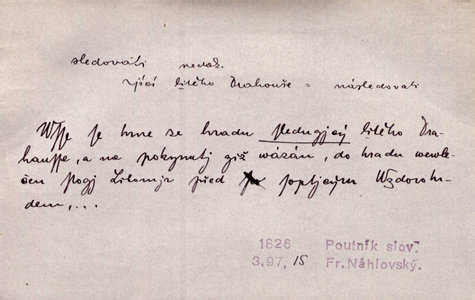 sledovati nedok.
zjící litého Drahouše = následovati
Wsse se hrne se hradu sledugjcý litého Dra-
hausse, a na pokynutj giž wázán, do hradu wewle-
čen stogj Litomjr před soptjcým Wzdorohr-
dem,...
1826 Poutník slov.
3.97, 15 Fr. Náhlovský.